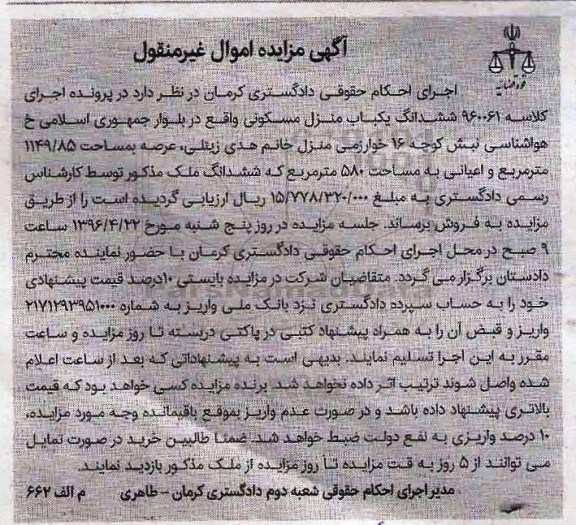 آگهی مزایده اموال غیرمنقول
قوه قضاییه
اجرای احکام حقوقی دادگستری کرمان در نظر دارد در پرونده اجرای
کلاسه ۹۶۰۰۶۱ ششدانگ یکباب منزل مسکونی واقع در بلوار جمهوری اسلامی خ
هواشناسی نبش کوچه ۱۶ خوارزمی منزل خانم هدی زینلی، عرصه بمساحت ۱۱۴۹/۸۵
مترمربع و اعیانی به مساحت ۵۸۰ مترمربع که ششدانگ ملک مذکور توسط کارشناس
رسمی دادگستری به مبلغ ۱۵/۷۷۸/۳۲۰/۰۰۰ ریال ارزیابی گردیده است را از طریق
مزایده به فروش برساند. جلسه مزایده در روز پنج شنبه مورخ ۱۳۹۶/۴/۲۲ ساعت
۹ صبح در محل اجرای احکام حقوقی دادگستری کرمان با حضور نماینده محترم
دادستان برگزار می گردد. متقاضیان شرکت در مزایده بایستی ۱۰درصد قیمت پیشنهادی
خود را به حساب سپرده دادگستری نزد بانک ملی واریز به شماره ۲۱۷۱۲۹۳۹۵۱۰۰۰
واریز و قبض آن را به همراه پیشنهاد کتبی در پاکتی دربسته تا روز مزایده و ساعت
مقرر به این اجرا تسلیم نمایند. بدیهی است به پیشنهاداتی که بعد از ساعت اعلام
شده واصل شوند ترتیب اثر داده نخواهد شد. برنده مزایده کسی خواهد بود که قیمت
بالاتری پیشنهاد داده باشد و در صورت عدم واریز بموقع باقیمانده وجه مورد مزایده،
۱۰ درصد واریزی به نفع دولت ضبط خواهد شد. ضمنا طالبین خرید در صورت تمایل
می توانند از ۵ روز به قت مزایده تا روز مزایده از ملک مذکور بازدید نمایند.
مدیر اجرای احکام حقوقی شعبه دوم دادگستری کرمان - طاهری م الف ۶۶۲